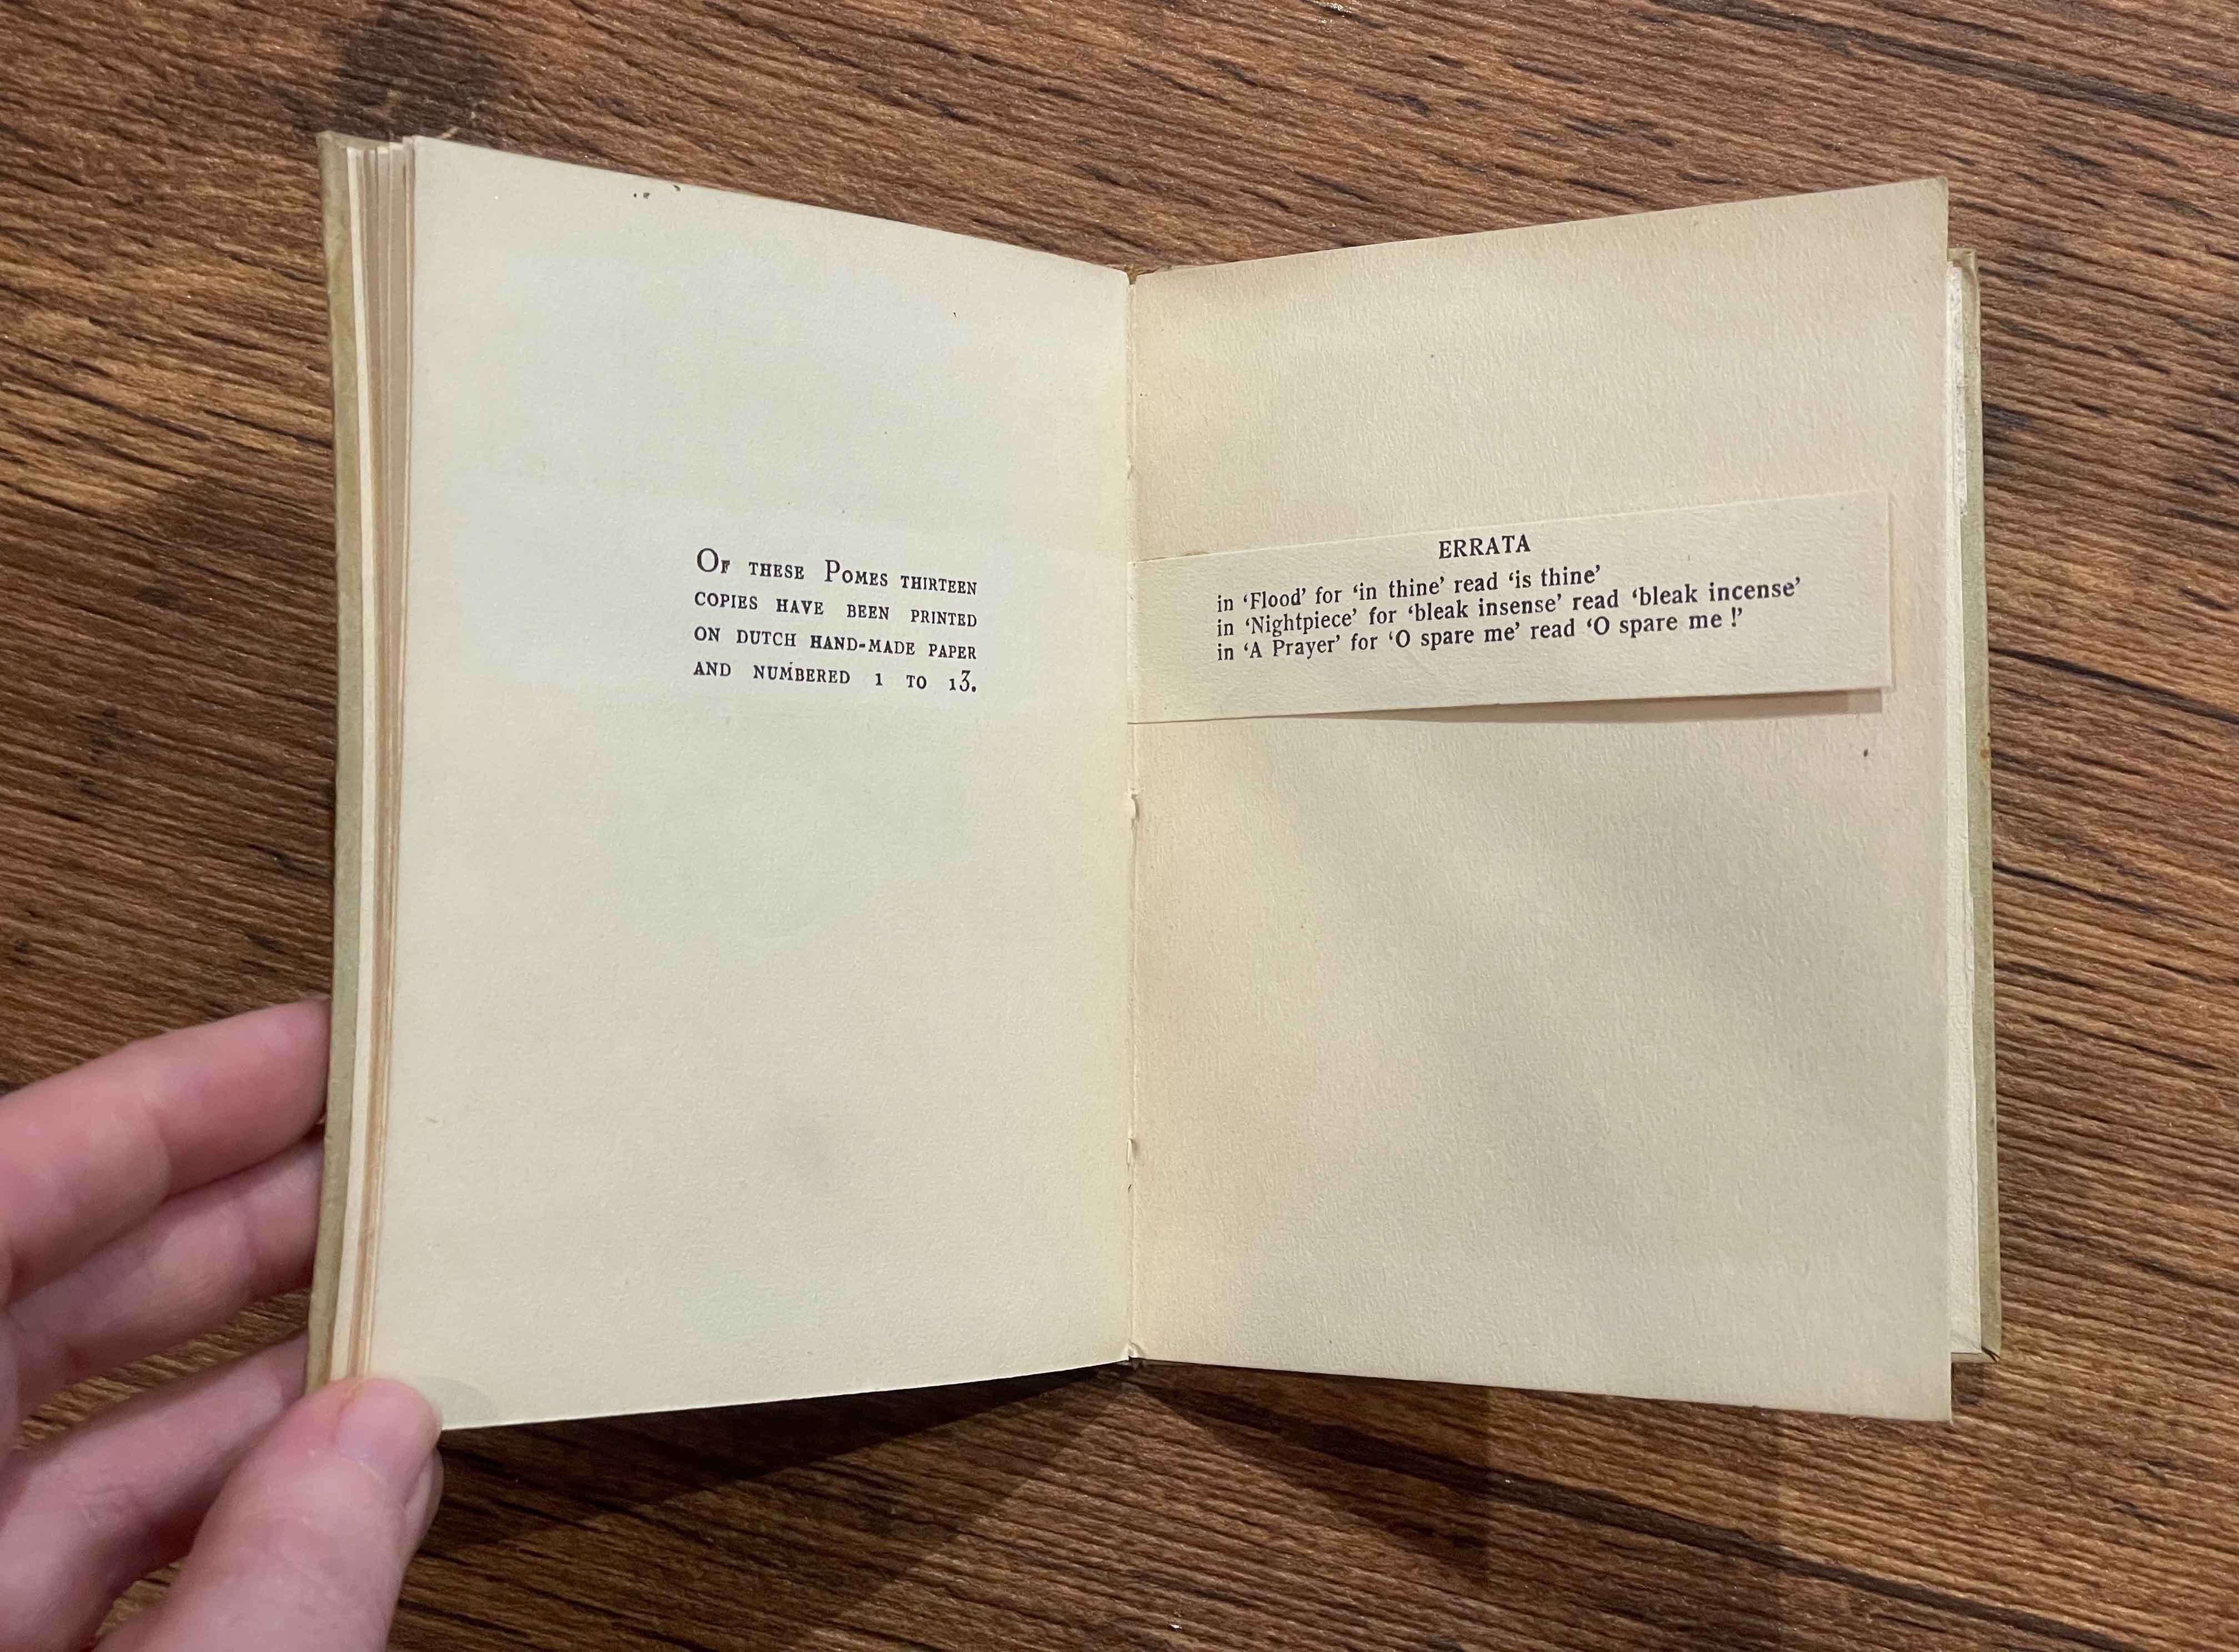 Of these Pomes thirteen
copies have been printed
on dutch hand-made paper
and numbered 1 to 13.
ERRATA
in ‘Flood’ for ‘in thine’ read ‘is thine’
in ‘Nightpiece’ for ‘bleak insense’ read ‘bleak incense’
in ‘A Prayer’ for ‘O spare me’ read ‘O spare me !’